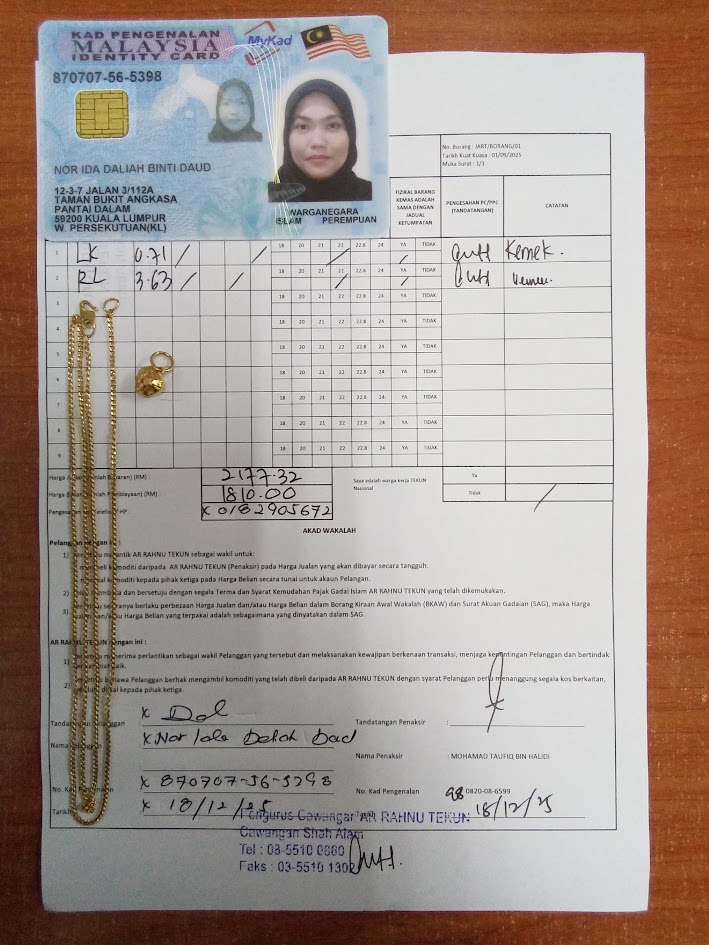 KAD PENGENALAN
MALAYSIA
IDENTITY CARD
MyKad
870707-56-5398
NOR IDA DALIAH BINTI DAUD
12-3-7 JALAN 3/112A
TAMAN BUKIT ANGKASA
PANTAI DALAM
59200 KUALA LUMPUR
W. PERSEKUTUAN(KL)
WARGANEGARA
ISLAM PEREMPUAN
No. Borang : JART/BORANG/01
Tarikh Kuat Kuasa : 01/09/2025
Muka Surat : 1/1
FIZIKAL BARANG KEMAS ADALAH SAMA DENGAN JADUAL KETUMPATAN
PENGESAHAN PC/PPC (TANDATANGAN)
CATATAN
1 LK 0.71 / / 18 20 21 22 22.8 24 YA TIDAK Kemek.
2 RL 3.63 / / 18 20 21 22 22.8 24 YA TIDAK
3 18 20 21 22 22.8 24 YA TIDAK
4 18 20 21 22 22.8 24 YA TIDAK
5 18 20 21 22 22.8 24 YA TIDAK
6 18 20 21 22 22.8 24 YA TIDAK
7 18 20 21 22 22.8 24 YA TIDAK
8 18 20 21 22 22.8 24 YA TIDAK
9 18 20 21 22 22.8 24 YA TIDAK
Harga (RM) : 2177.32
Harga (RM) : 1810.00
HP x 0182905672
Saya adalah warga kerja TEKUN Nasional
Ya
Tidak /
AKAD WAKALAH
1) melantik AR RAHNU TEKUN sebagai wakil untuk:
komoditi daripada AR RAHNU TEKUN (Penaksir) pada Harga Jualan yang akan dibayar secara tangguh.
komoditi kepada pihak ketiga pada Harga Belian secara tunai untuk akaun Pelanggan.
2) dan bersetuju dengan segala Terma dan Syarat Kemudahan Pajak Gadai Islam AR RAHNU TEKUN yang telah dikemukakan.
3) berlaku perbezaan Harga Jualan dan/atau Harga Belian dalam Borang Kiraan Awal Wakalah (BKAW) dan Surat Akuan Gadaian (SAG), maka Harga
Harga Belian yang terpakai adalah sebagaimana yang dinyatakan dalam SAG.
AR TEKUN dengan ini :
1) menerima perlantikan sebagai wakil Pelanggan yang tersebut dan melaksanakan kewajipan berkenaan transaksi, menjaga kepentingan Pelanggan dan bertindak
2) Pelanggan berhak mengambil komoditi yang telah dibeli daripada AR RAHNU TEKUN dengan syarat Pelanggan perlu menanggung segala kos berkaitan,
kepada pihak ketiga.
x Dal
Tandatangan Penaksir :
x Nor
Nama Penaksir : MOHAMAD TAUFIQ BIN HALIDI
x 870707-56-5398
No. Kad Pengenalan 980820-08-6599
Tarikh x 18/12/25
18/12/25
Pengurus Cawangan AR RAHNU TEKUN
Cawangan Shah Alam
Tel : 03-5510 0860
Faks : 03-5510 1302